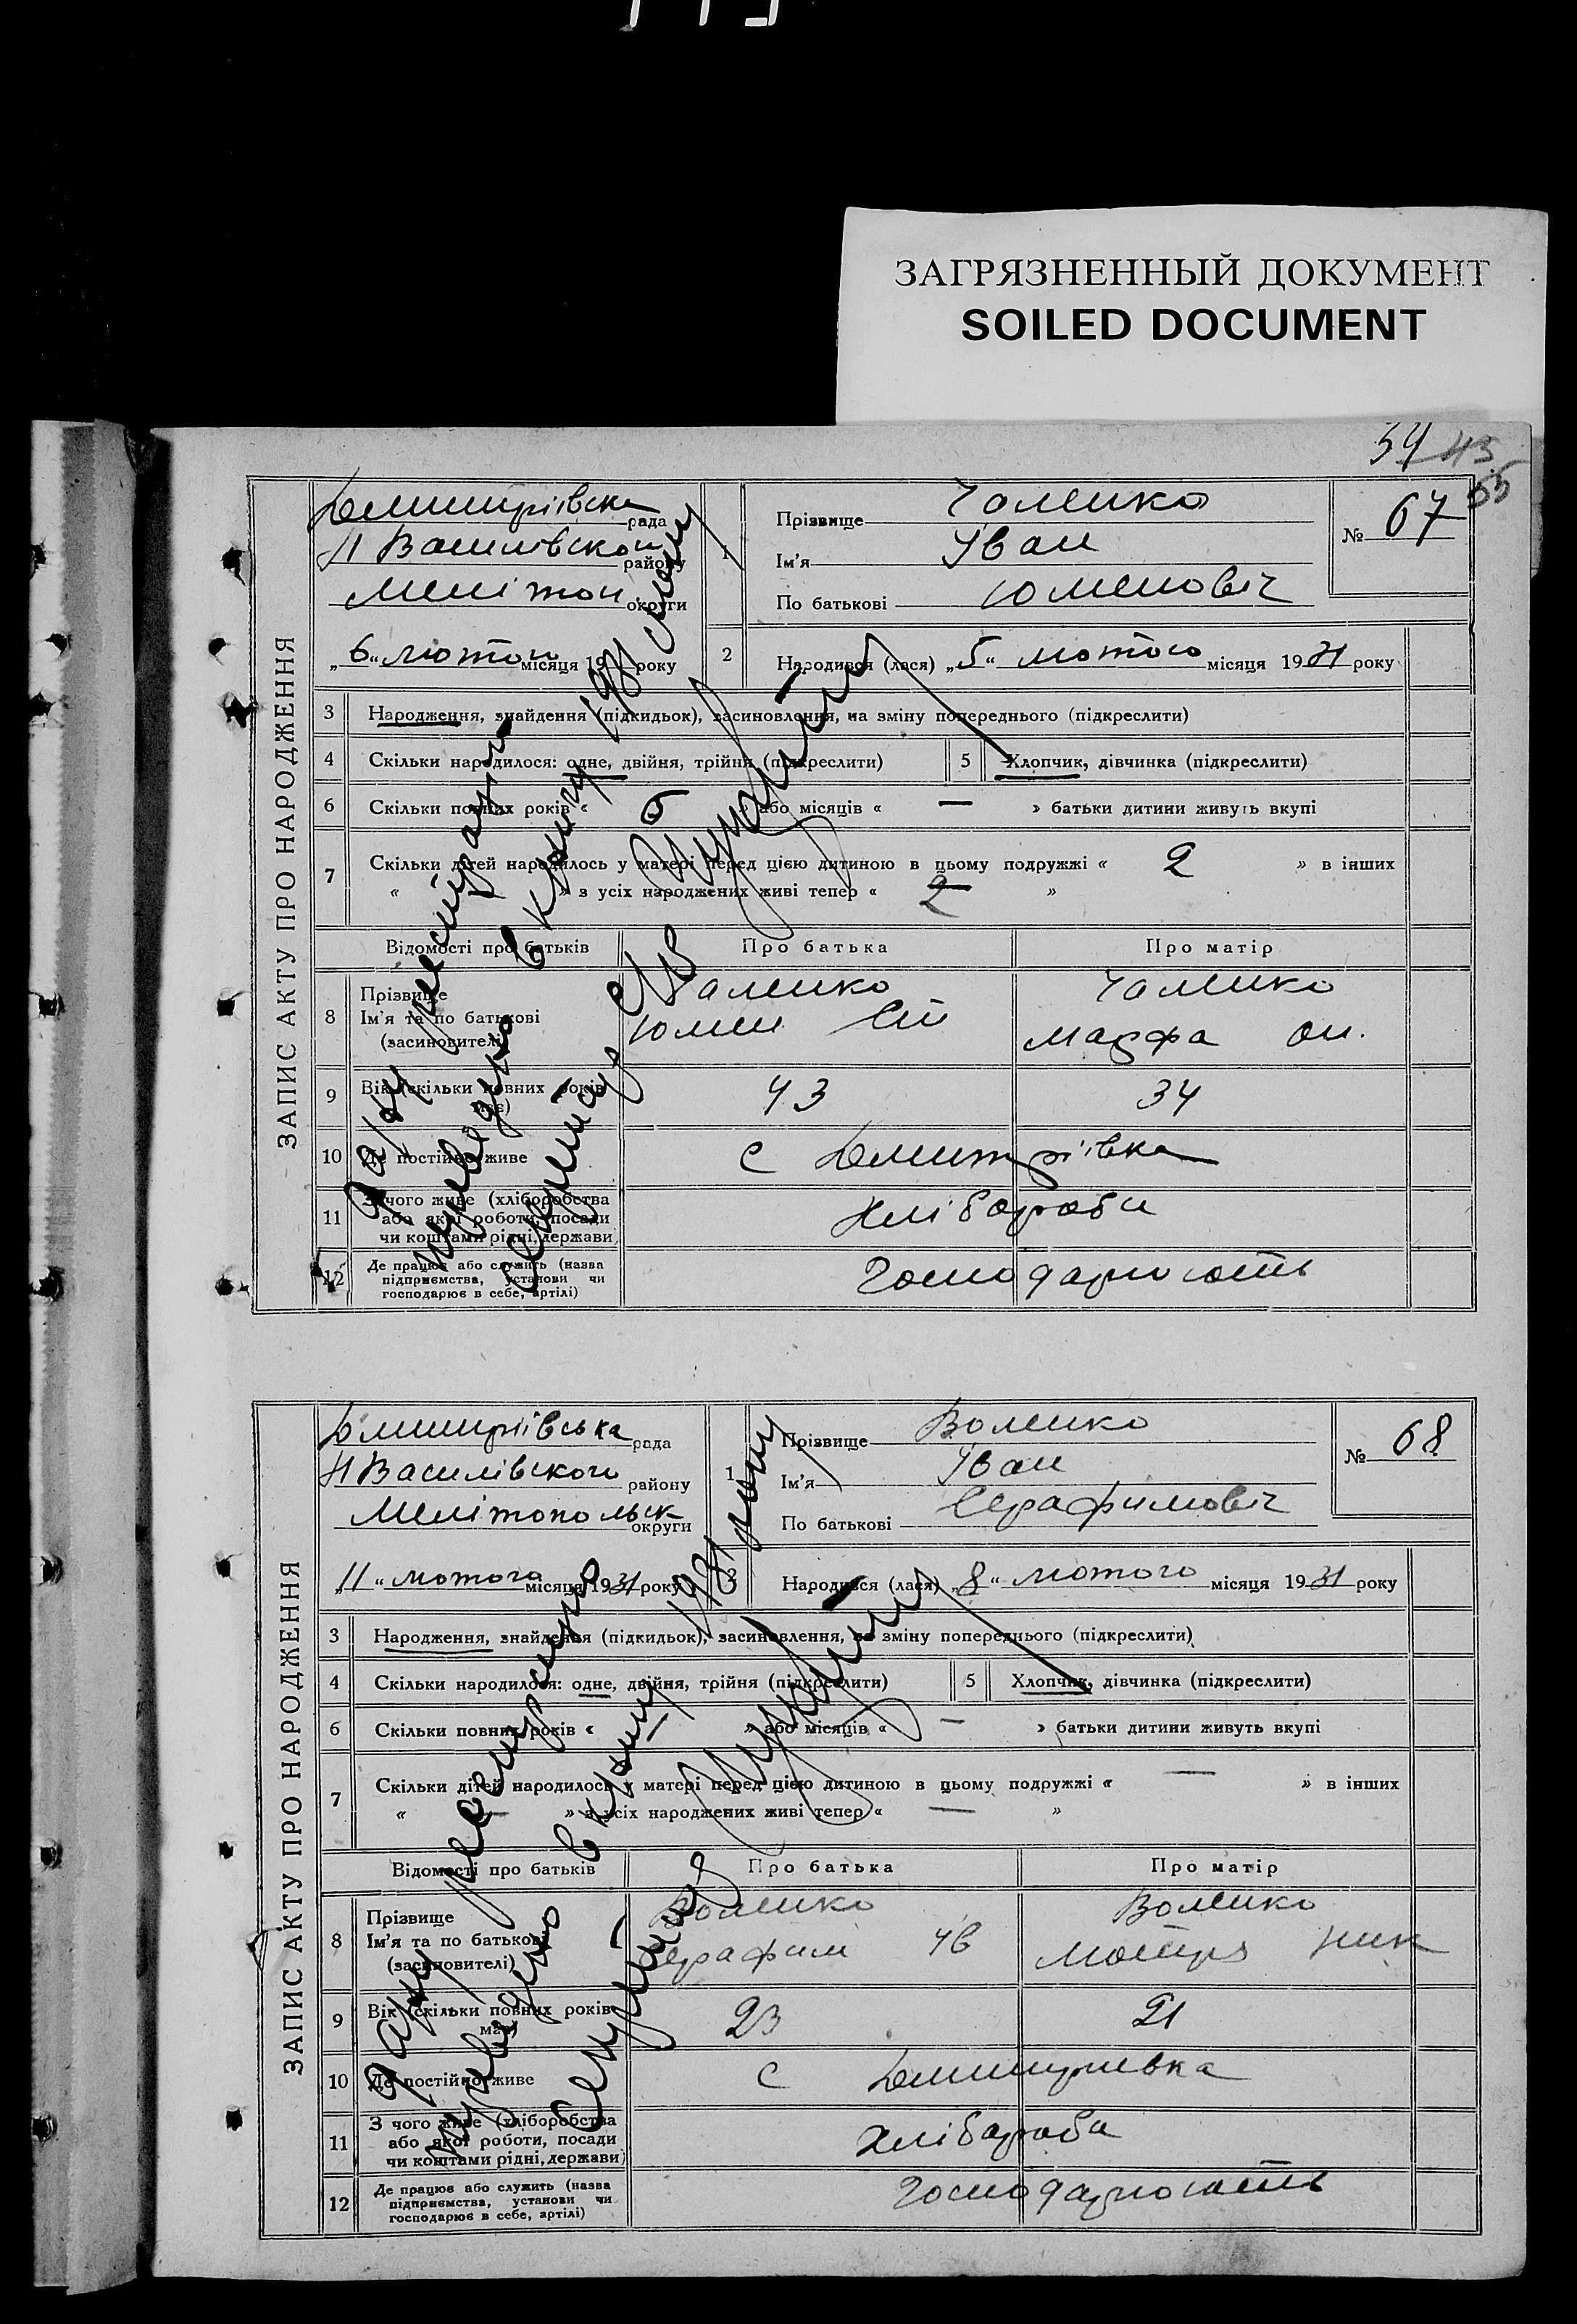 ЗАГРЯЗНЕННЫЙ ДОКУМЕНТ
SOILED DOCUMENT
54 43
55
ЗАПИС АКТУ ПРО НАРОДЖЕННЯ
Дмитріівска рада
Н Василівского району
Меліпоп округи
„6“ лютого місяця 19 року
№ 67
1 Прізвище Чаленко
Ім'я Іван
По батькові Юменовіч
2 Народився (лася) „5“ лютого місяця 1931 року
3 Народження, знайдення (підкидьок), засиновлення, на зміну попереднього (підкреслити)
4 Скільки народилося: одне, двійня, трійня (підкреслити)
5 Хлопчик, дівчинка (підкреслити)
6 Скільки повних років « 5 » або місяців « — » батьки дитини живуть вкупі
7 Скільки дітей народилось у матері перед цією дитиною в цьому подружжі « 2 » в інших
« — » з усіх народжених живі тепер « 2 »
Відомості про батьків Про батька Про матір
8 Прізвище Чаленко Чаленко
Ім'я та по батькові Юмен Марфа
(засиновителі)
9 Вік (скільки повних років має) 43 34
10 Де постійно живе с Дмитріівка
11 З чого живе (хліборобства
або якої роботи, посади
чи коштами рідні, держави) Хлібороби
12 Де працює або служить (назва
підприємства, установи чи
господарює в себе, артілі) Господарность
року 1931
в книгу
ЗАПИС АКТУ ПРО НАРОДЖЕННЯ
Дмитріївська рада
Н Василівского району
Мелітопольск округи
„11“ лютого місяця 1931 року
№ 68
1 Прізвище Воленко
Ім'я Іван
По батькові Серафимовіч
2 Народився (лася) „8“ лютого місяця 1931 року
3 Народження, знайдення (підкидьок), засиновлення, на зміну попереднього (підкреслити)
4 Скільки народилося: одне, двійня, трійня (підкреслити)
5 Хлопчик, дівчинка (підкреслити)
6 Скільки повних років « — » або місяців « — » батьки дитини живуть вкупі
7 Скільки дітей народилось у матері перед цією дитиною в цьому подружжі « — » в інших
« — » з усіх народжених живі тепер « — »
Відомості про батьків Про батька Про матір
8 Прізвище Воленко Воленко
Ім'я та по батькові Серафим Ів Мотря Ник
(засиновителі)
9 Вік (скільки повних років має) 23 21
10 Де постійно живе с Дмитривка
11 З чого живе (хліборобства
або якої роботи, посади
чи коштами рідні, держави) Хлібароба
12 Де працює або служить (назва
підприємства, установи чи
господарює в себе, артілі) Господарность